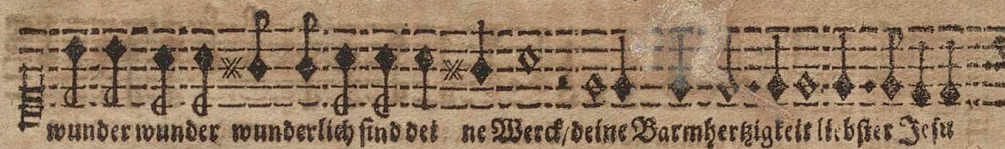 wunder wunder wunderlich sind dei ne Werck/ deine Barmhertzigkeit liebster Jesu